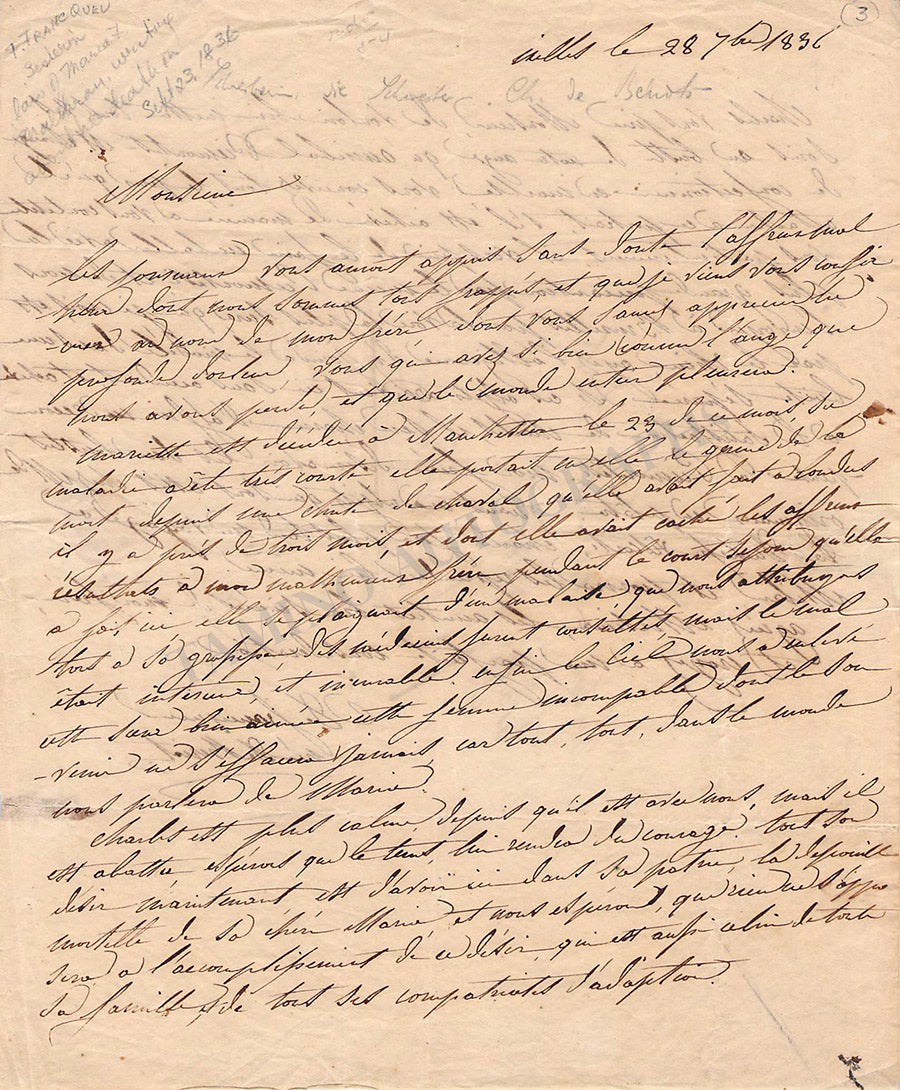 3
F. FRANCQUEU
Sister in
law of Manuel
writing
about death on
Sept 23, 1836
ixelles le 28 7bre 1836
Ch. de Bériot
Monsieur
les journaux vous auront appris sans-doute l'affreux mal
heur dont nous sommes tous frappés et que je viens vous confir
-mer au nom de mon frère, dont vous saurez apprecier la
profonde douleur, vous qui avez si bien connu l'ange que
nous avons perdu, et que le monde entier pleurera.
mariette est décédée à Manchester le 23 de ce mois, sa
maladie a été très courte elle portait en elle le germe de la
mort depuis une chute de cheval qu'elle avait fait à Londres
il y a près de trois mois, et dont elle avait caché les affreux
résultats à mon malheureux frère pendant le court séjour qu'elle
a fait ici elle se plaignait d'un malaise que nous attribuyons
tous à sa grossesse, des médecins furent consultés mais le mal
était intérieur et incurable, enfin le ciel nous a enlevé
cette sœur bien aimée cette femme incomparable dont le sou
-venir ne s'effacera jamais, car tout, tout, dans le monde
nous parlera de Marie.
Charles est plus calme depuis qu'il est avec nous, mais il
est abattu espérons que le tems, lui rendra du courage, tout son
désir maintenant est d'avoir ici dans sa patrie, la depouille
mortelle de sa chère Marie, et nous espérons, que rien ne s'oppo
sera a l'accomplissement de ce désir, qui est aussi celui de toute
sa famille, de tous ses compatriotes d'adoption.
TAMINO AUTOGRAPHS